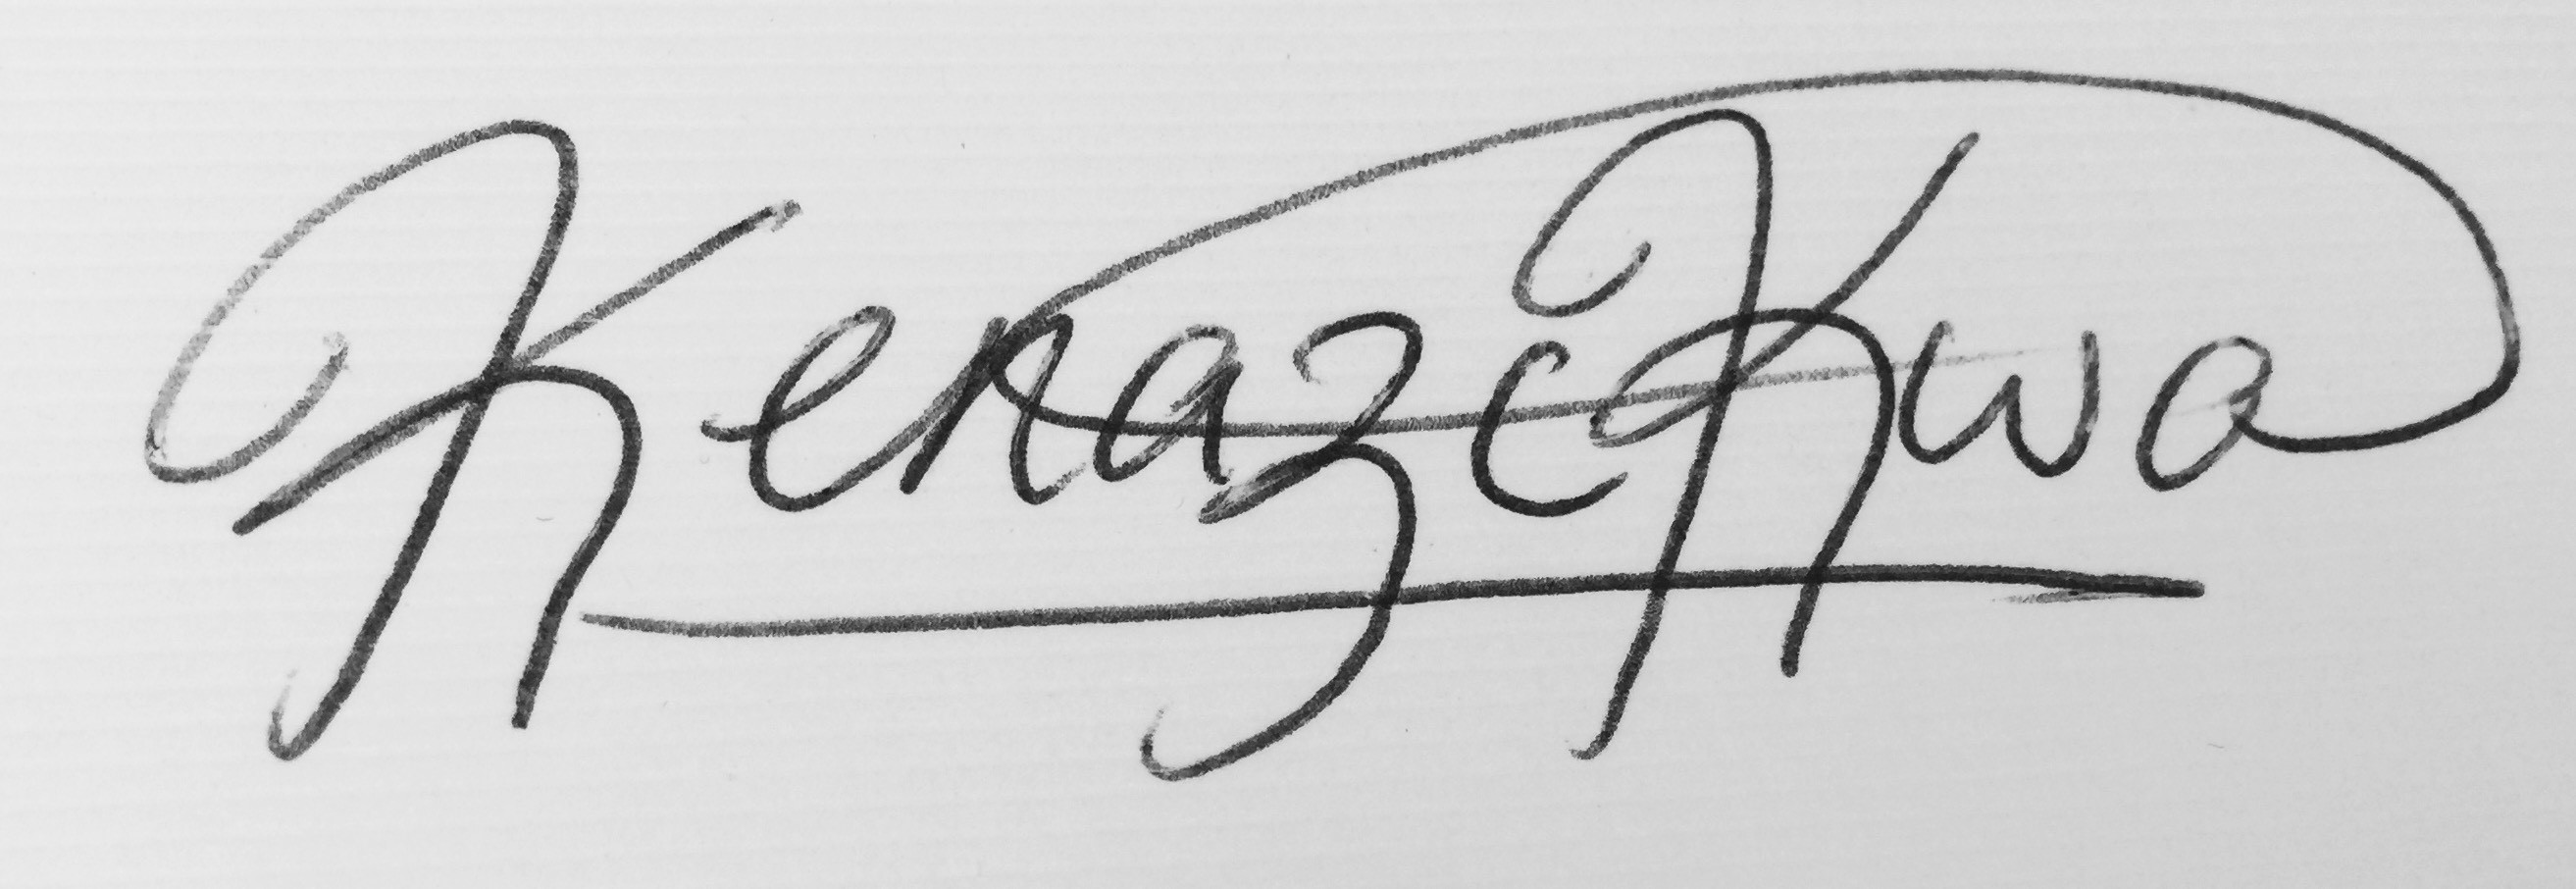 Kenaze Kwa